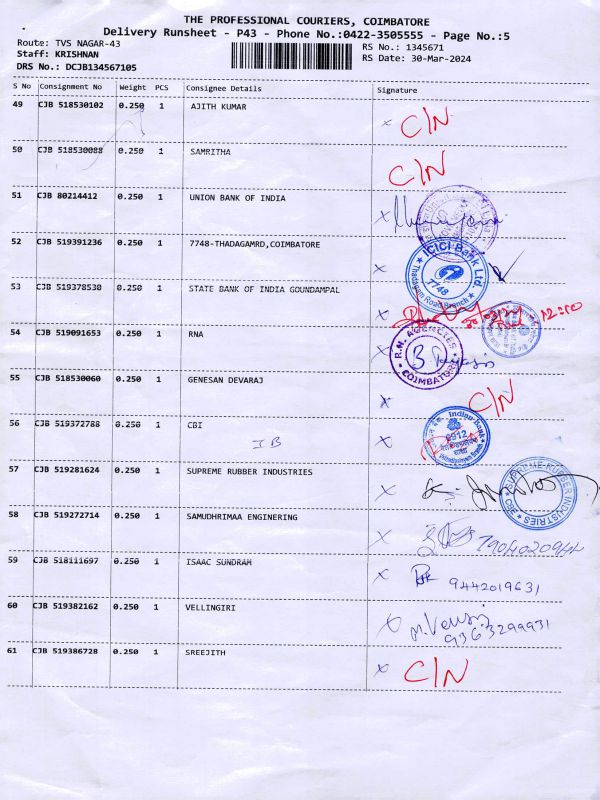 THE PROFESSIONAL COURIERS, COIMBATORE
Delivery Runsheet - P43 - Phone No.:0422-3505555 - Page No.:5
Route: TVS NAGAR-43 RS No.: 1345671
Staff: KRISHNAN RS Date: 30-Mar-2024
DRS No.: DCJB134567105
S No Consignment No Weight PCS Consignee Details Signature
49 CJB 518530102 0.250 1 AJITH KUMAR x C/N
50 CJB 518530088 0.250 1 SAMRITHA C/N
51 CJB 80214412 0.250 1 UNION BANK OF INDIA x
52 CJB 519391236 0.250 1 7748-THADAGAMRD,COIMBATORE x ICICI Bank Ltd. 7748 Thadagam Road Branch
53 CJB 519378530 0.250 1 STATE BANK OF INDIA GOUNDAMPAL x 12:00
54 CJB 519091653 0.250 1 RNA x R.N. AGENCIES COIMBATORE
55 CJB 518530060 0.250 1 GENESAN DEVARAJ x C/N
56 CJB 519372788 0.250 1 CBI IB x Indian Bank
57 CJB 519281624 0.250 1 SUPREME RUBBER INDUSTRIES x SUPREME RUBBER INDUSTRIES
58 CJB 519272714 0.250 1 SAMUDHRIMAA ENGINERING x
59 CJB 518111697 0.250 1 ISAAC SUNDRAM x 9442019631
60 CJB 519382162 0.250 1 VELLINGIRI x
9363299931
61 CJB 519386728 0.250 1 SREEJITH x C/N